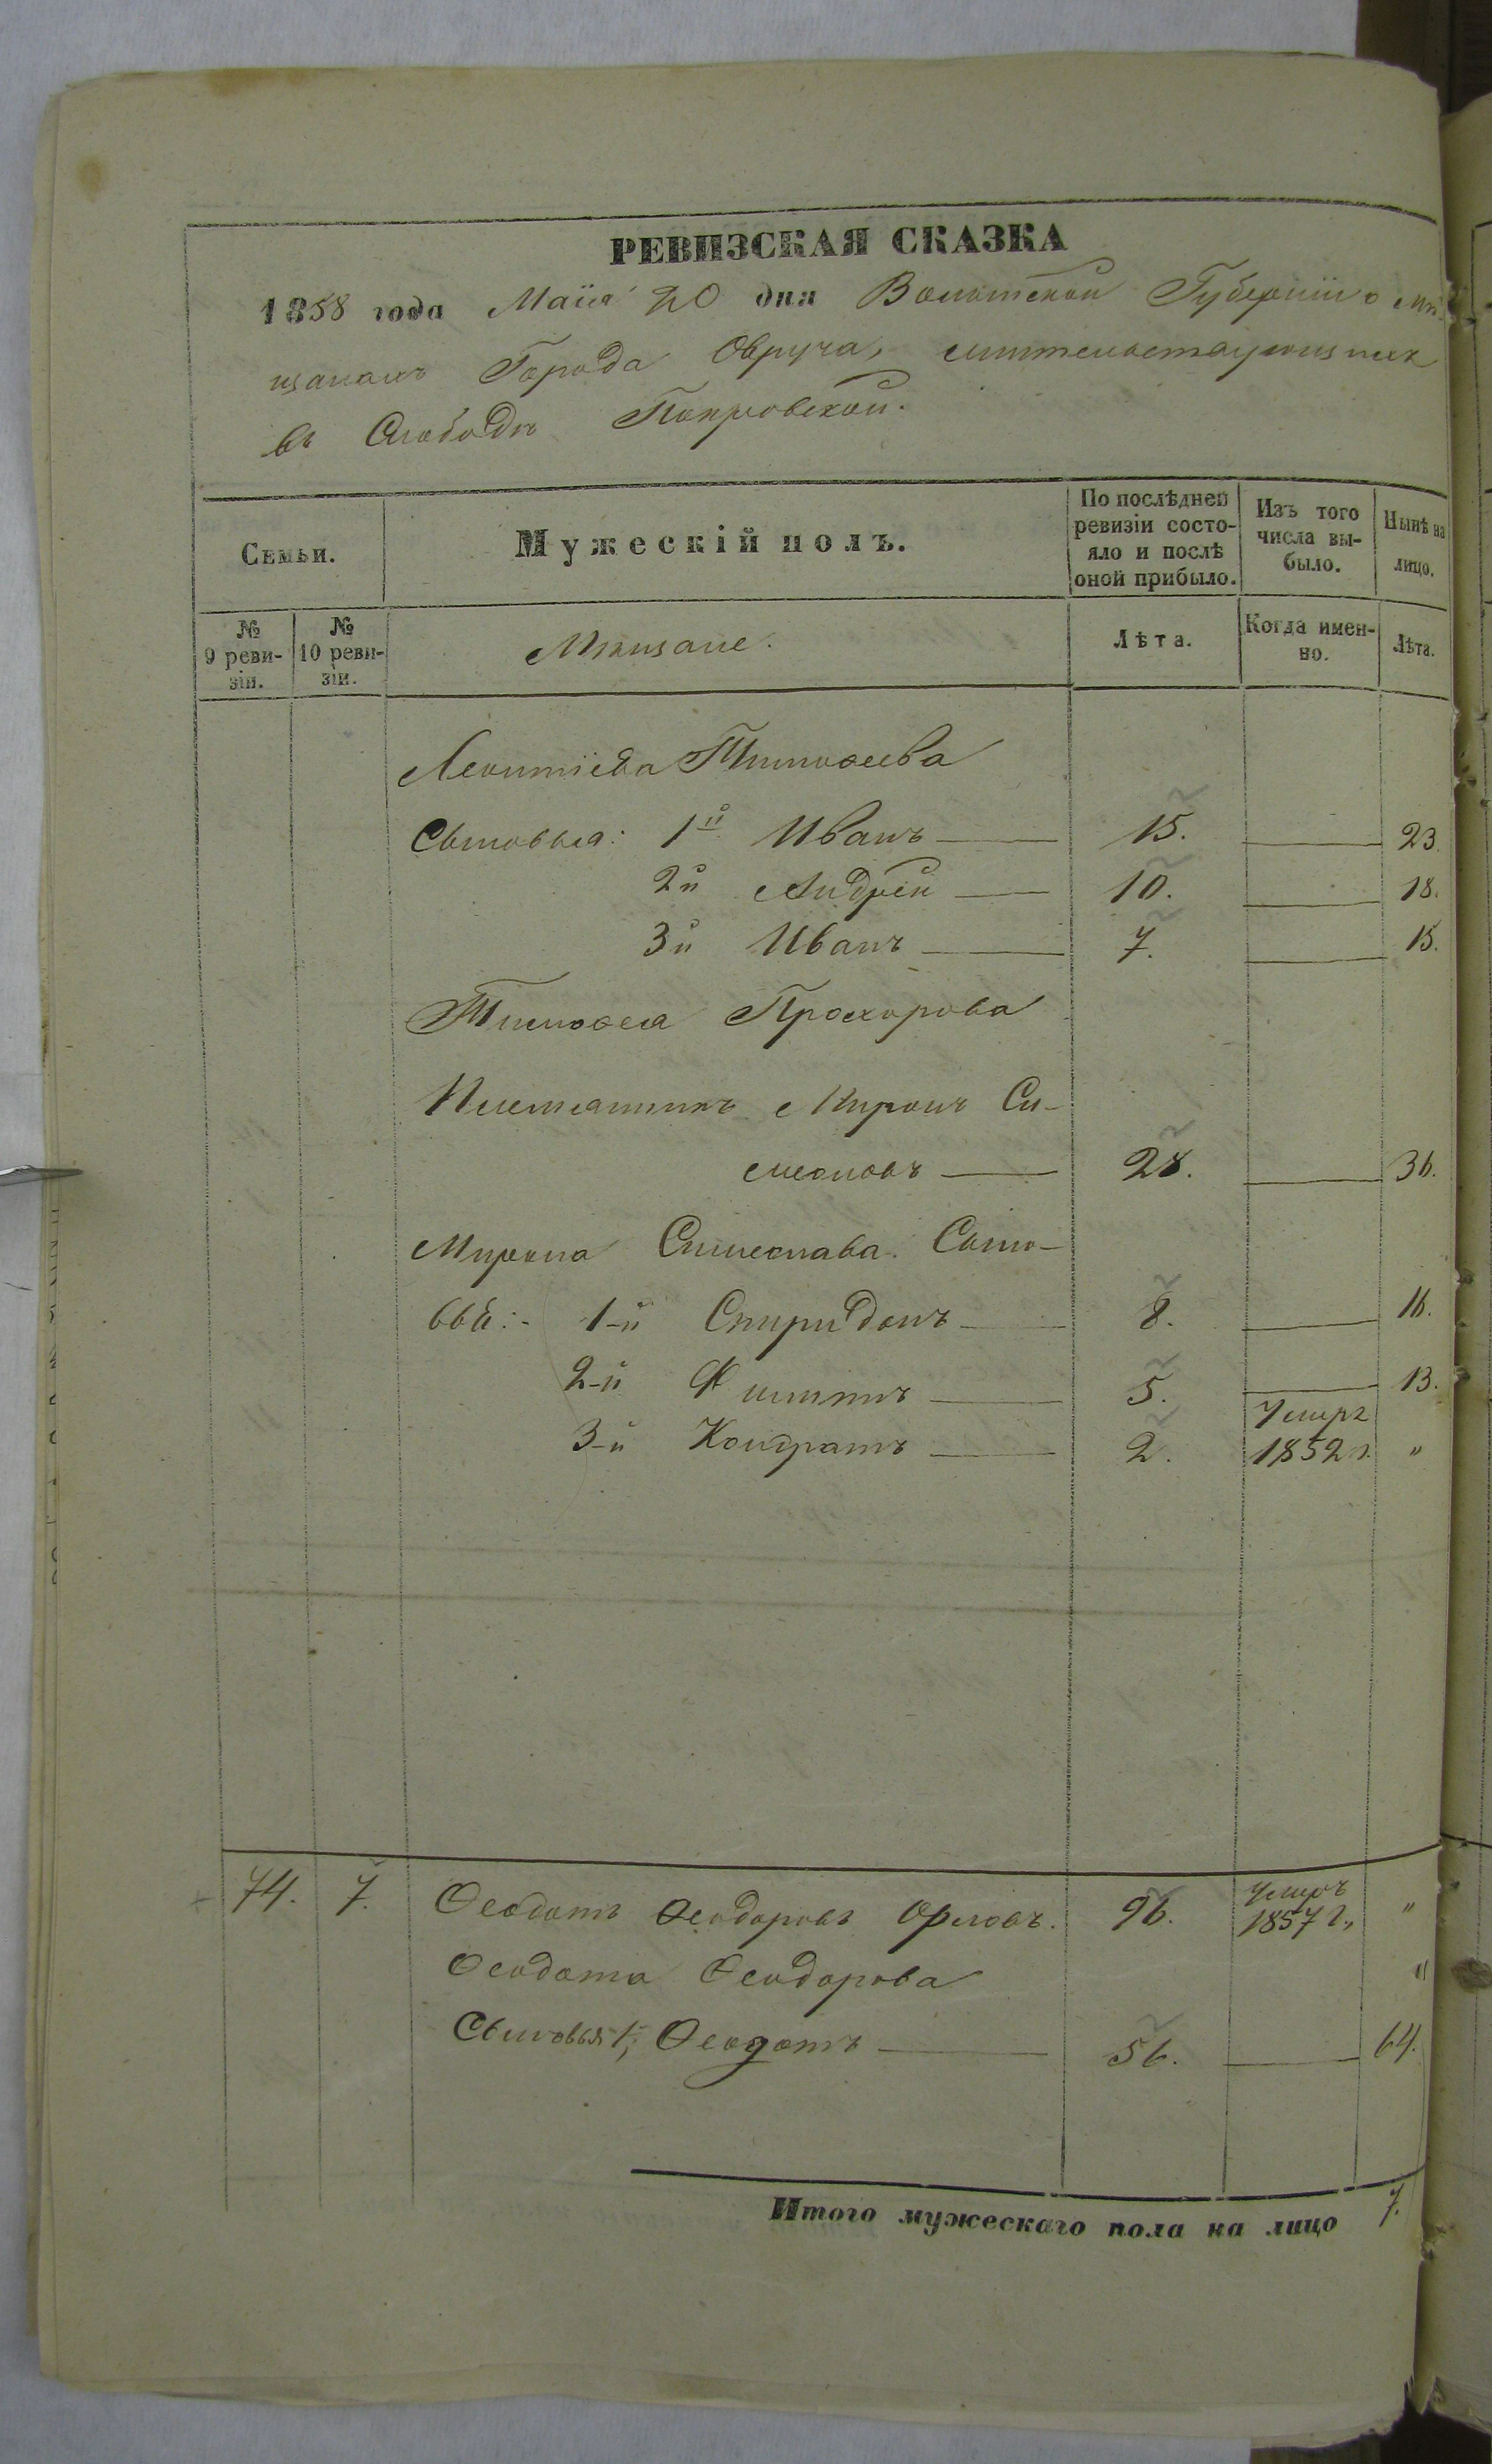 РЕВИЗСКАЯ СКАЗКА
1858 года Маія 20 дня Волынской Губерніи о мѣ-
щанахъ Города Овруча, жительствующихъ
въ Слободѣ Покровской.
Семьи.
Мужескій полъ.
По послѣдней ревизіи состо-яло и послѣ оной прибыло.
Изъ того числа вы-было.
Нынѣ на лицо.
№ 9 реви-зіи.
№ 10 реви-зіи.
Мѣщане.
Лѣта.
Когда имен-но.
Лѣта.
Леонтіева Тимоѳеева
Сыновья: 1й Иванъ 15. 23.
2й Андрей 10. 18.
3й Иванъ 7. 15.
Тимоѳея Прохорова
Племянникъ Миронъ Си-
меоновъ 28. 36.
Мирона Симеонова Сыно-
вья: 1-й Спиридонъ 8. 16.
2-й Филипъ 5. 13.
3-й Кондратъ 2. Умеръ 1852 г. "
74. 7. Ѳеодотъ Ѳеодоровъ Орловъ. 96. Умеръ 1857 г., "
Ѳеодота Ѳеодорова "
Сыновья 1, Ѳеодотъ 56. 64.
Итого мужескаго пола на лицо 7.